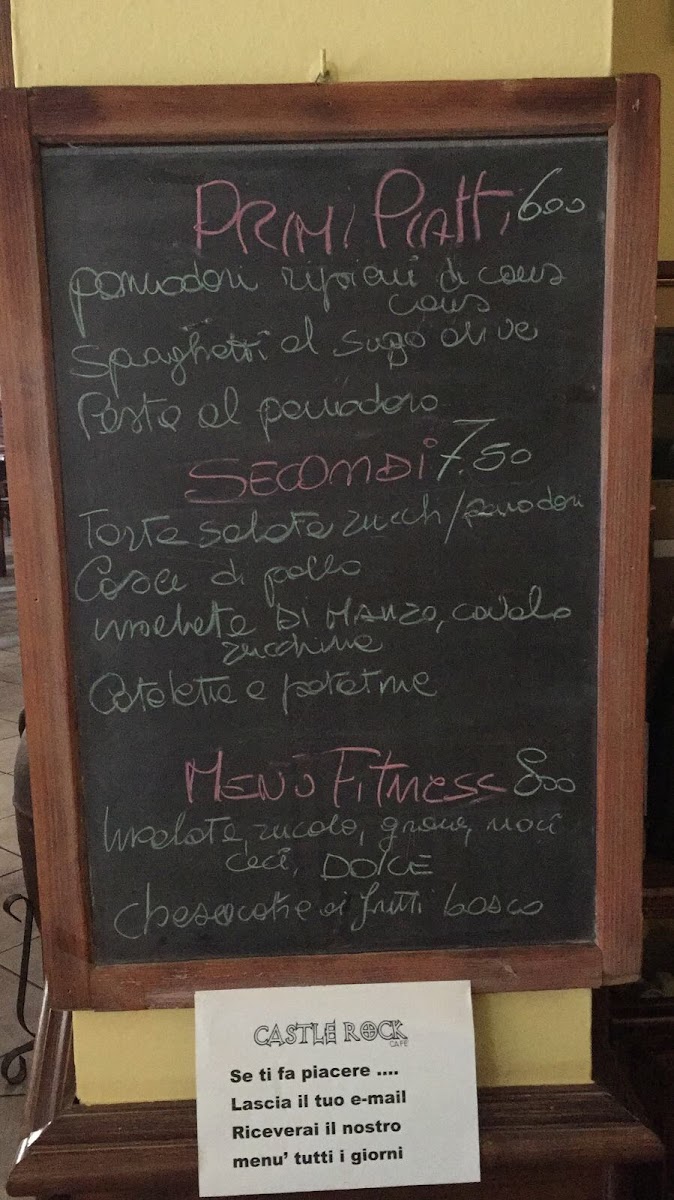 PRIMI PIATTI 600
pomodori ripieni di cous
cous
Spaghetti al sugo olive
Pasta al pomodoro
SECONDI 7.50
Torta salata zucch/pomodori
Cosce di pollo
insalata DI MANZO, cavolo
zucchine
Cotolette e patatine
MENÙ FITNESS 800
Insalata, rucola, grana, noci
ceci, DOLCE
chesecake ai frutti bosco
CASTLE ROCK
CAFE
Se ti fa piacere ....
Lascia il tuo e-mail
Riceverai il nostro
menu' tutti i giorni